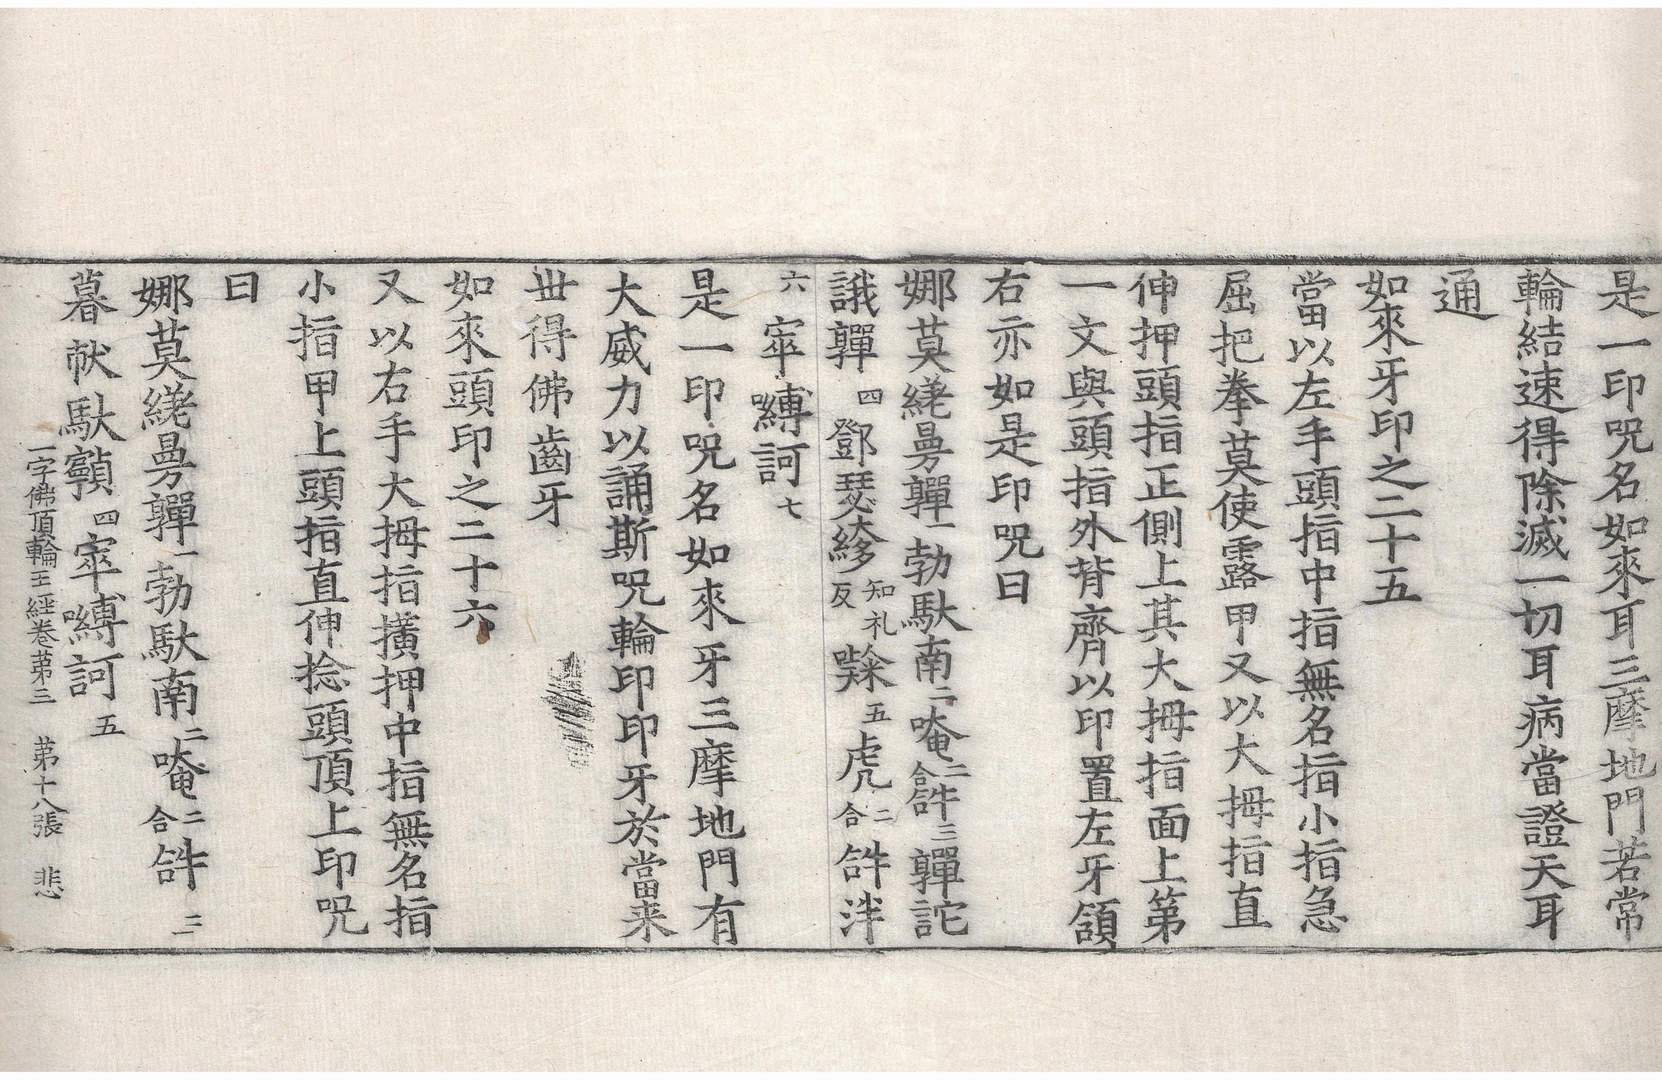 是一印呪名如來耳三摩地門若常
輪結速得除滅一切耳病當證天耳
通
如來牙印之二十五
當以左手頭指中指無名指小指急
屈把拳莫使露甲又以大拇指直
伸押頭指正側上其大拇指面上第
一文與頭指外背齊以印置左牙頷
右亦如是印呪曰
娜莫繞曼亸一勃馱南二唵二合𤙖三亸詑
誐亸四鄧瑟𮈔知礼反㘑五虎二合𤙖泮
六窣嚩訶七
是一印呪名如來牙三摩地門有
大威力以誦斯呪輪印印牙於當来
丗得佛齒牙
如來頭印之二十六
又以右手大拇指擴押中指無名指
小指甲上頭指直伸捻頭頂上印呪
曰
娜莫繞曼亸一勃馱南二唵二合𤙖三
暮㭇馱䫂四窣嚩訶五
一字佛頂輪王經卷苐三　苐十八張　悲